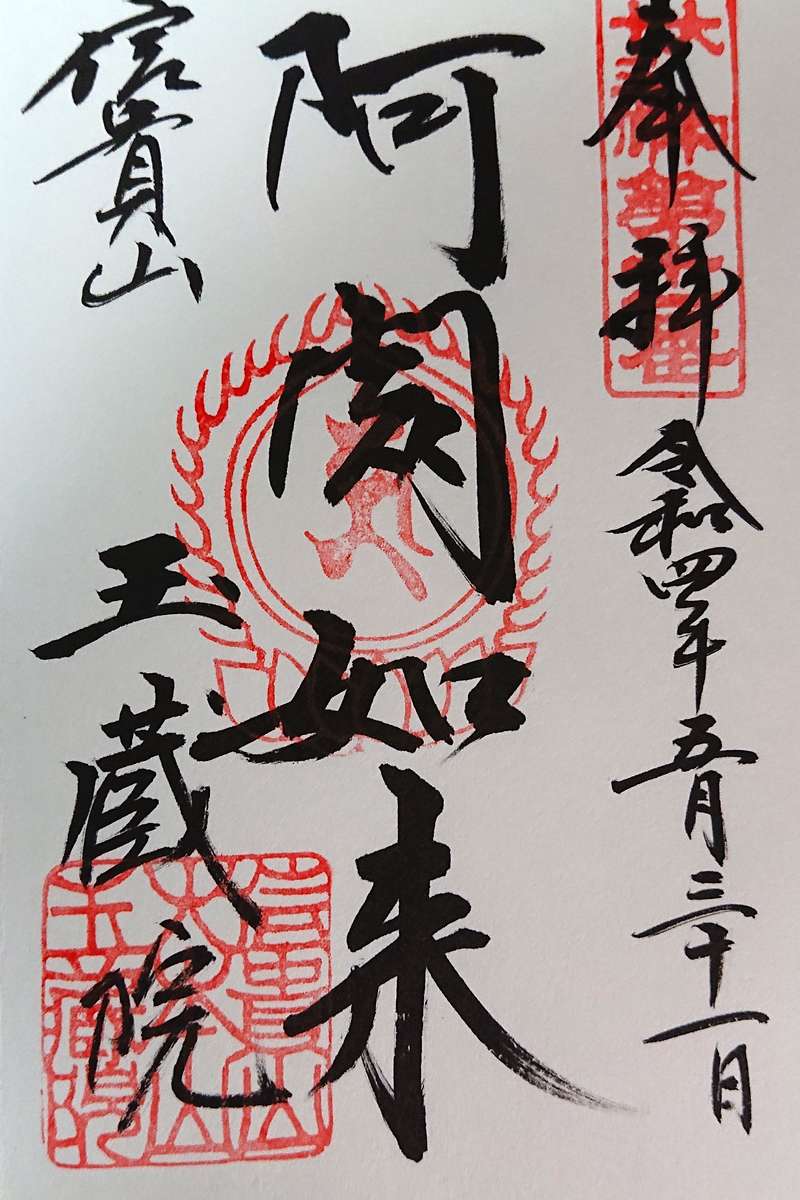 奉拝
令和四年五月三十一日
阿閦如来
信貴山
玉蔵院
信貴山
大本山
玉蔵院